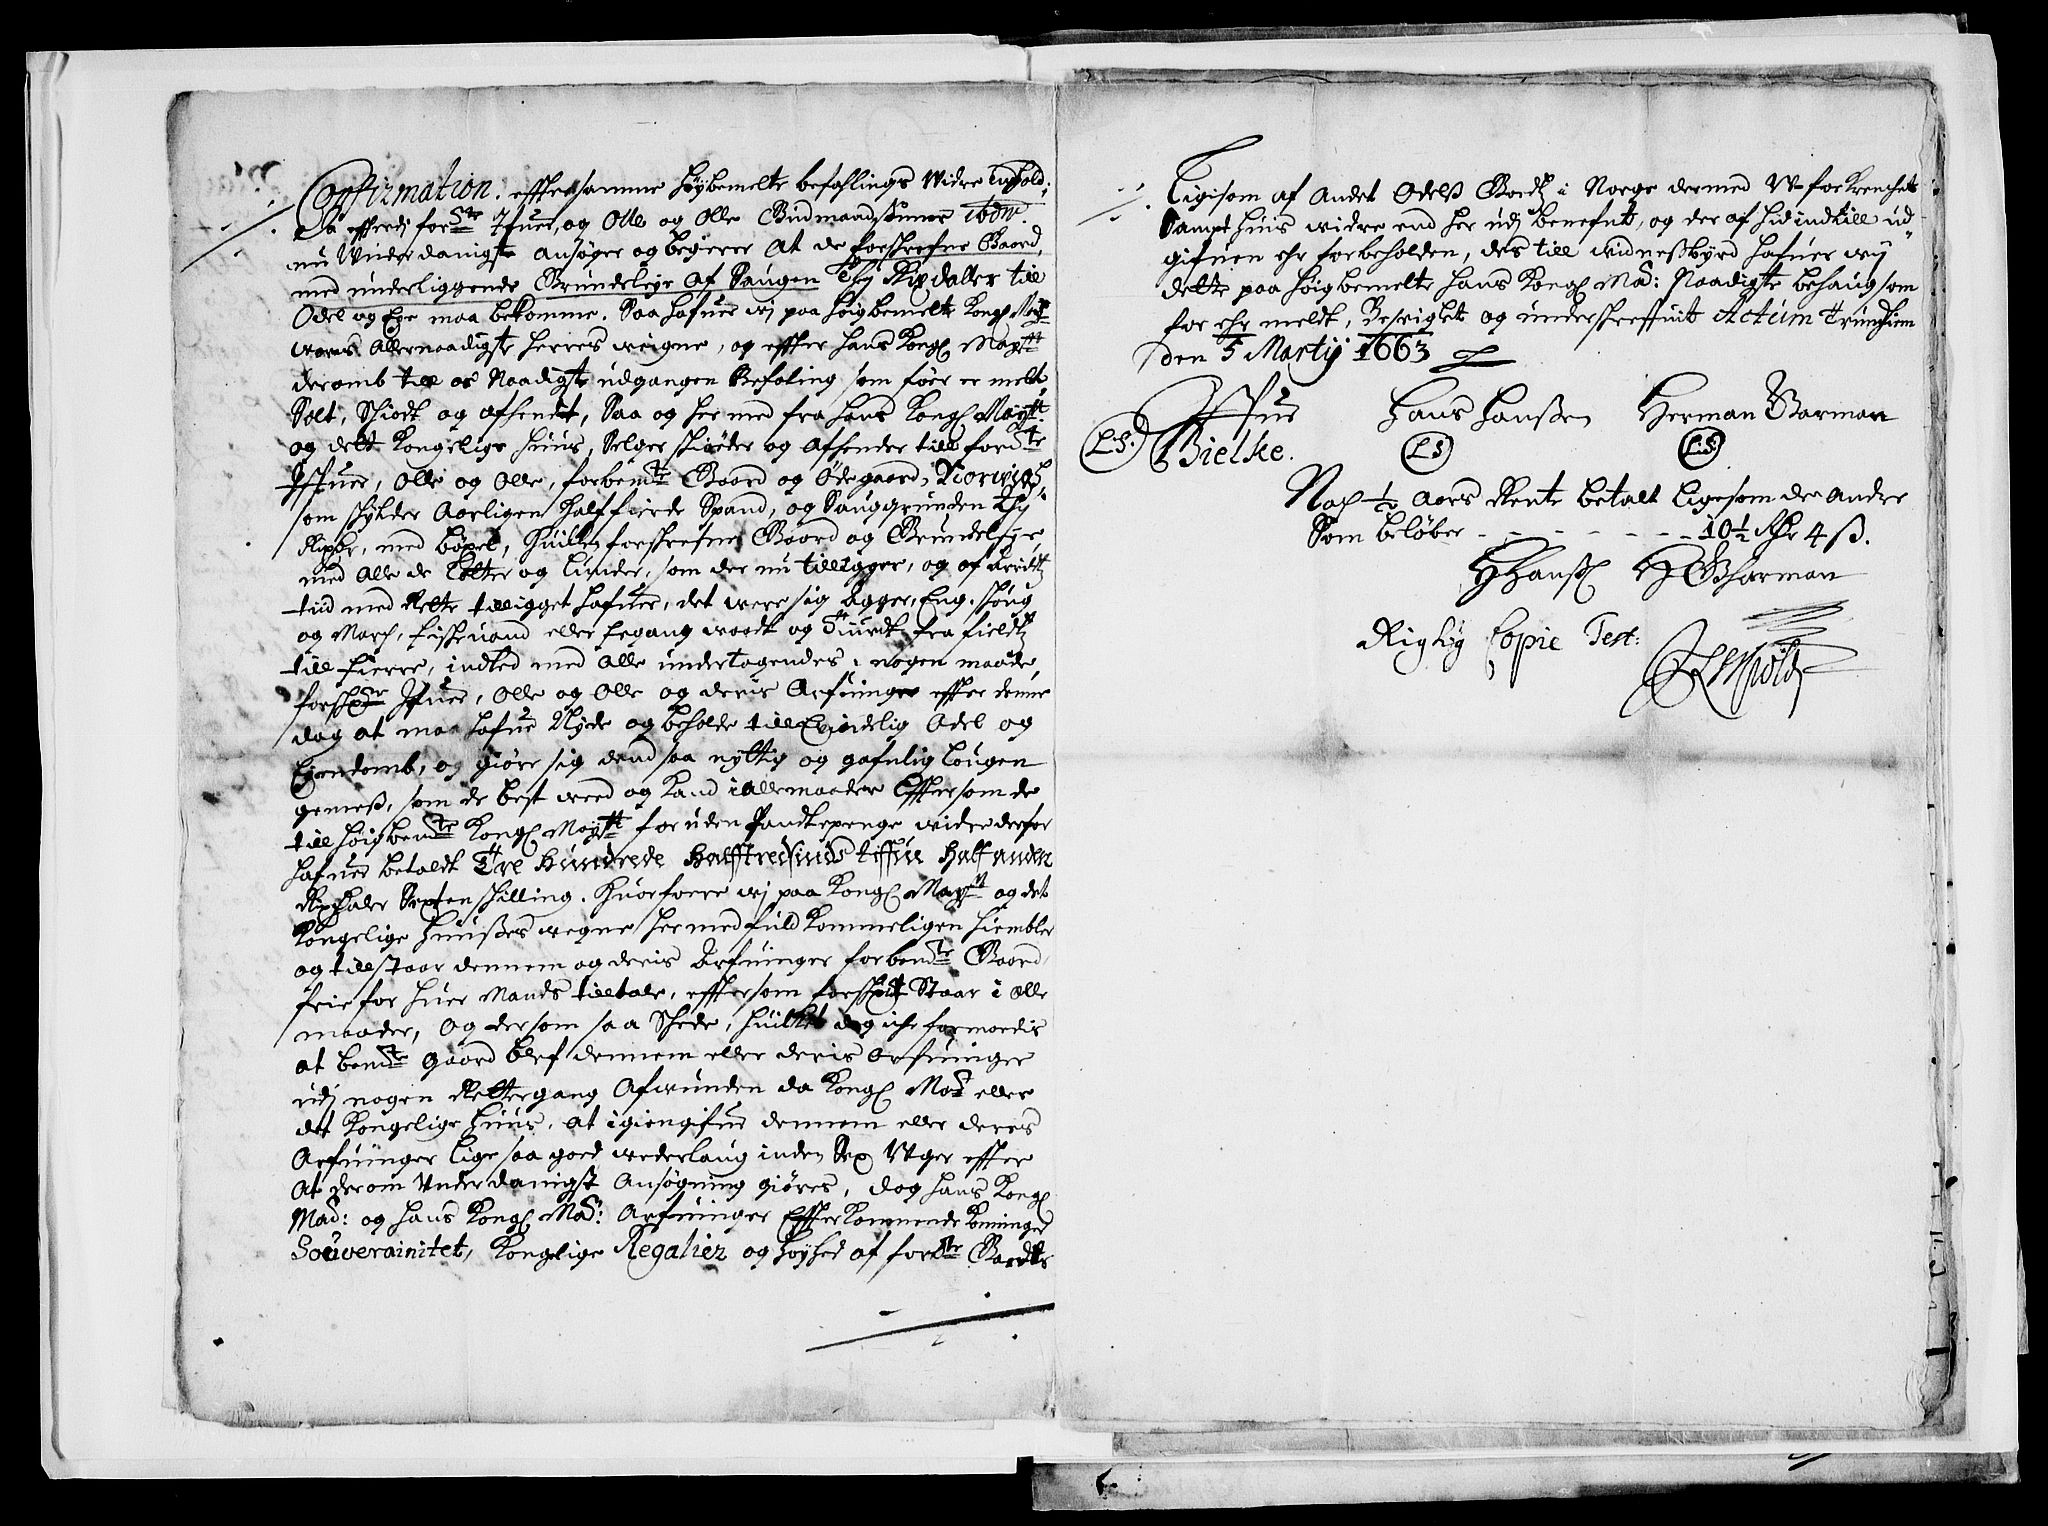 Confirmation. effter samme høybemelte befahlings widre Indhold;
Da effterdj forSte Ifuer, og Olle og Olle Gudmandsønner
nu Underdanigste ansøger og begierer at de forskrefne Gaard,
med underliggende Grundeleye af Saugen Thj Rixdaller till
Odel og Eye maa bekomme. Saa hafuer wj paa høigbemelte Kongl May
wores Allernaadigste herres weigne, og effter hans Kongl Maytt
deromb till os Naadigste udgangen Befaling som føer er melt,
Solt, Skiødt og afhendet, Saa og her med fra hans Kongl Maytt
og dett Kongelige Huus, Selger skiøder og afhender till forSte
Ifuer, Olle og Olle, forbemte Gaard og Ødegaard,
som skylder Aarligen Halffierde Spand, og Sauggrunden Thj
Rixdr, med bøxel, huilken forskrefne Gaard og Grundeleye
med alle de Lotter og Lunder, som der nu tilligger, og af Areidts
tiid med Rette tilligget hafuer, det were sig Agger, Eng, skoug
og March, fiskeuand eller fegang woedt og Tiurdt, fra field
till fierre, indted med alle undertagendes i nogen maade,
forskne Ifuer, Olle og Olle og deris Arfuinger effter denne
dag at maa hafue Nyde og beholde till Evindelig Odel og
Eyendomb, og giøre sig dend saa nyttig og gafnlig Lougen
gemeß, som de best weed og Kand i alle maader Effter som de
till høigbemte Kongl Maytt foruden Pandtepenge widre derfor
hafuer betaldt Tre Hundrede Halfftredsinds tiffue Half anden
Rixdaler Sexten skilling. Huorforre wj paa Kongl Maytt og det
Kongelige Huußes wegne her med fuld Kommeligen hiembler
og tillstaar dennem og deris Arfuinger forbemte Gaard
frie for huer Mands tilltale, effter som forskret Staar i alle
maader, Og dersom saa Skede, huilket dog iche formoedis
at bemte gaard blef dennem eller deris arfuinger
udj nogen Rettergang Afwunden da Kongl May eller
det Kongelige Huus, at igiengifue dennem eller deres
Arfuinger lige saa goed wederlaug inden Sex Uger effter
At derom Underdanigst Ansøgning giøres, dog hans Kongl
May: og hans Kongl May: Arfuinger Effterkommende Konninger
Souverainitet, Kongelige Regalier og høyhed af forSte Gaardt
Ligesom af andet Odelß Godz i Norge dermed U-forkrenchet
Sampt huis widre end her udj benefnt, og der af hid indtill ud-
gifuen ehr forbeholden, des till widnesbyrd hafuer wj
dette paa høigbemelte hans Kongl May: Naadigste behaug som
for ehr meldt, Beseiglet og underskreffuit Actum Trundhiem
den 5 Martij 1663
Offue Hans Hanßen Herman Garman
(L.S.) Bielke. (L S) (L S)
Noch 1/2 Aars Rente betalt ligesom de andre
Som beløber - - - - - - 10 1/2 Rdr 4 ß.
H Hanß H Gharman
Rigtig Copie Test: